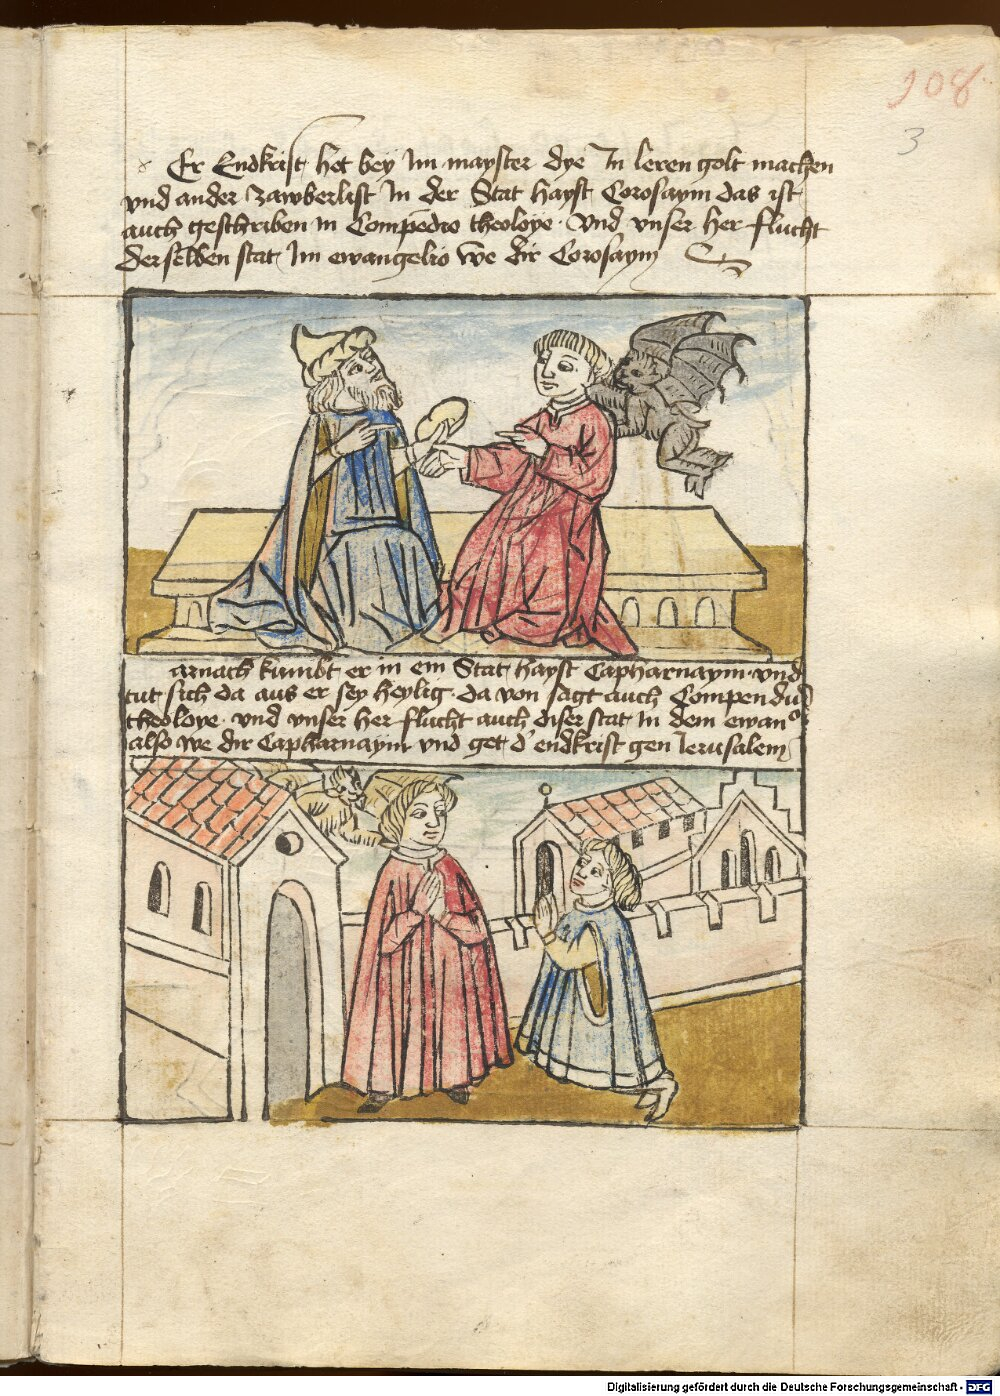 108
3
Er Endkrist het bey Im mayster dye In leren golt machen
vnd ander zawberlist In der Stat hayst Corosaym das ist
auch geschriben in Compēdio theoloye · Vnd vnser her flucht
derselben stat Im ewangelio we dir Corosaym
arnach kumbt er in ein Stat hayst Capharnaym · vnd
tut sich da aus er sey heylig · da von sagt auch Compendiu
theoloye · vnd vnser her flucht auch diser stat In dem ewan
also we dir Capharnaym vnd get d' endkrist gen Ierusalem
Digitalisierung gefördert durch die Deutsche Forschungsgemeinschaft - DFG